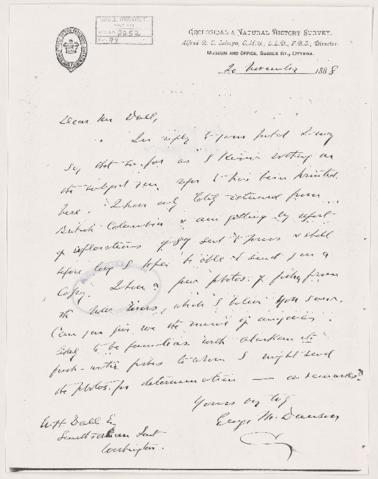 GEOLOGICAL & NATURAL HISTORY SURVEY.
Alfred R. C. Selwyn, C.M.G., L.L.D., F.R.S., Director.
MUSEUM AND OFFICE, SUSSEX ST., OTTAWA.
20 November 1888
Dear Mr Dall,
In reply to your postal I may
say that so far as I know nothing on
the subject you refer to has been printed
here. I have only lately returned from
British Columbia & am getting my report
of explorations of 87 sent to press & shall
before long I hope be able to send you a
Copy. I have a few photos of fishes from
the
Rivers, which I believe you
Can you give me the name of anyone
likely to be familiar with Alaskan
fresh-water fishes to whom I might send
the photos for determination — or remarks?
Yours very truly
George M. Dawson
W H Dall Esq
Smithsonian Inst
Washington.